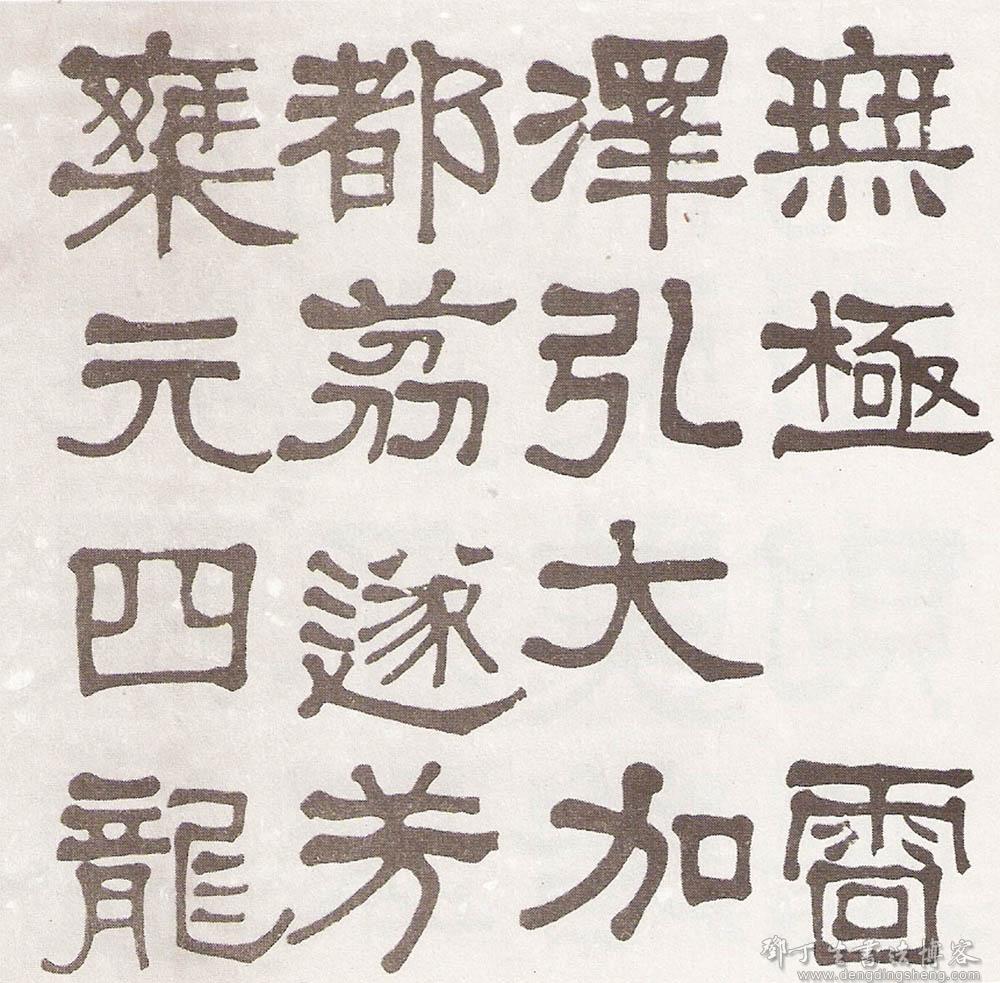 無極
澤弘大加
都荔遂芳
乘元四龍
鄧丁生書法博客
www.dengdingsheng.com